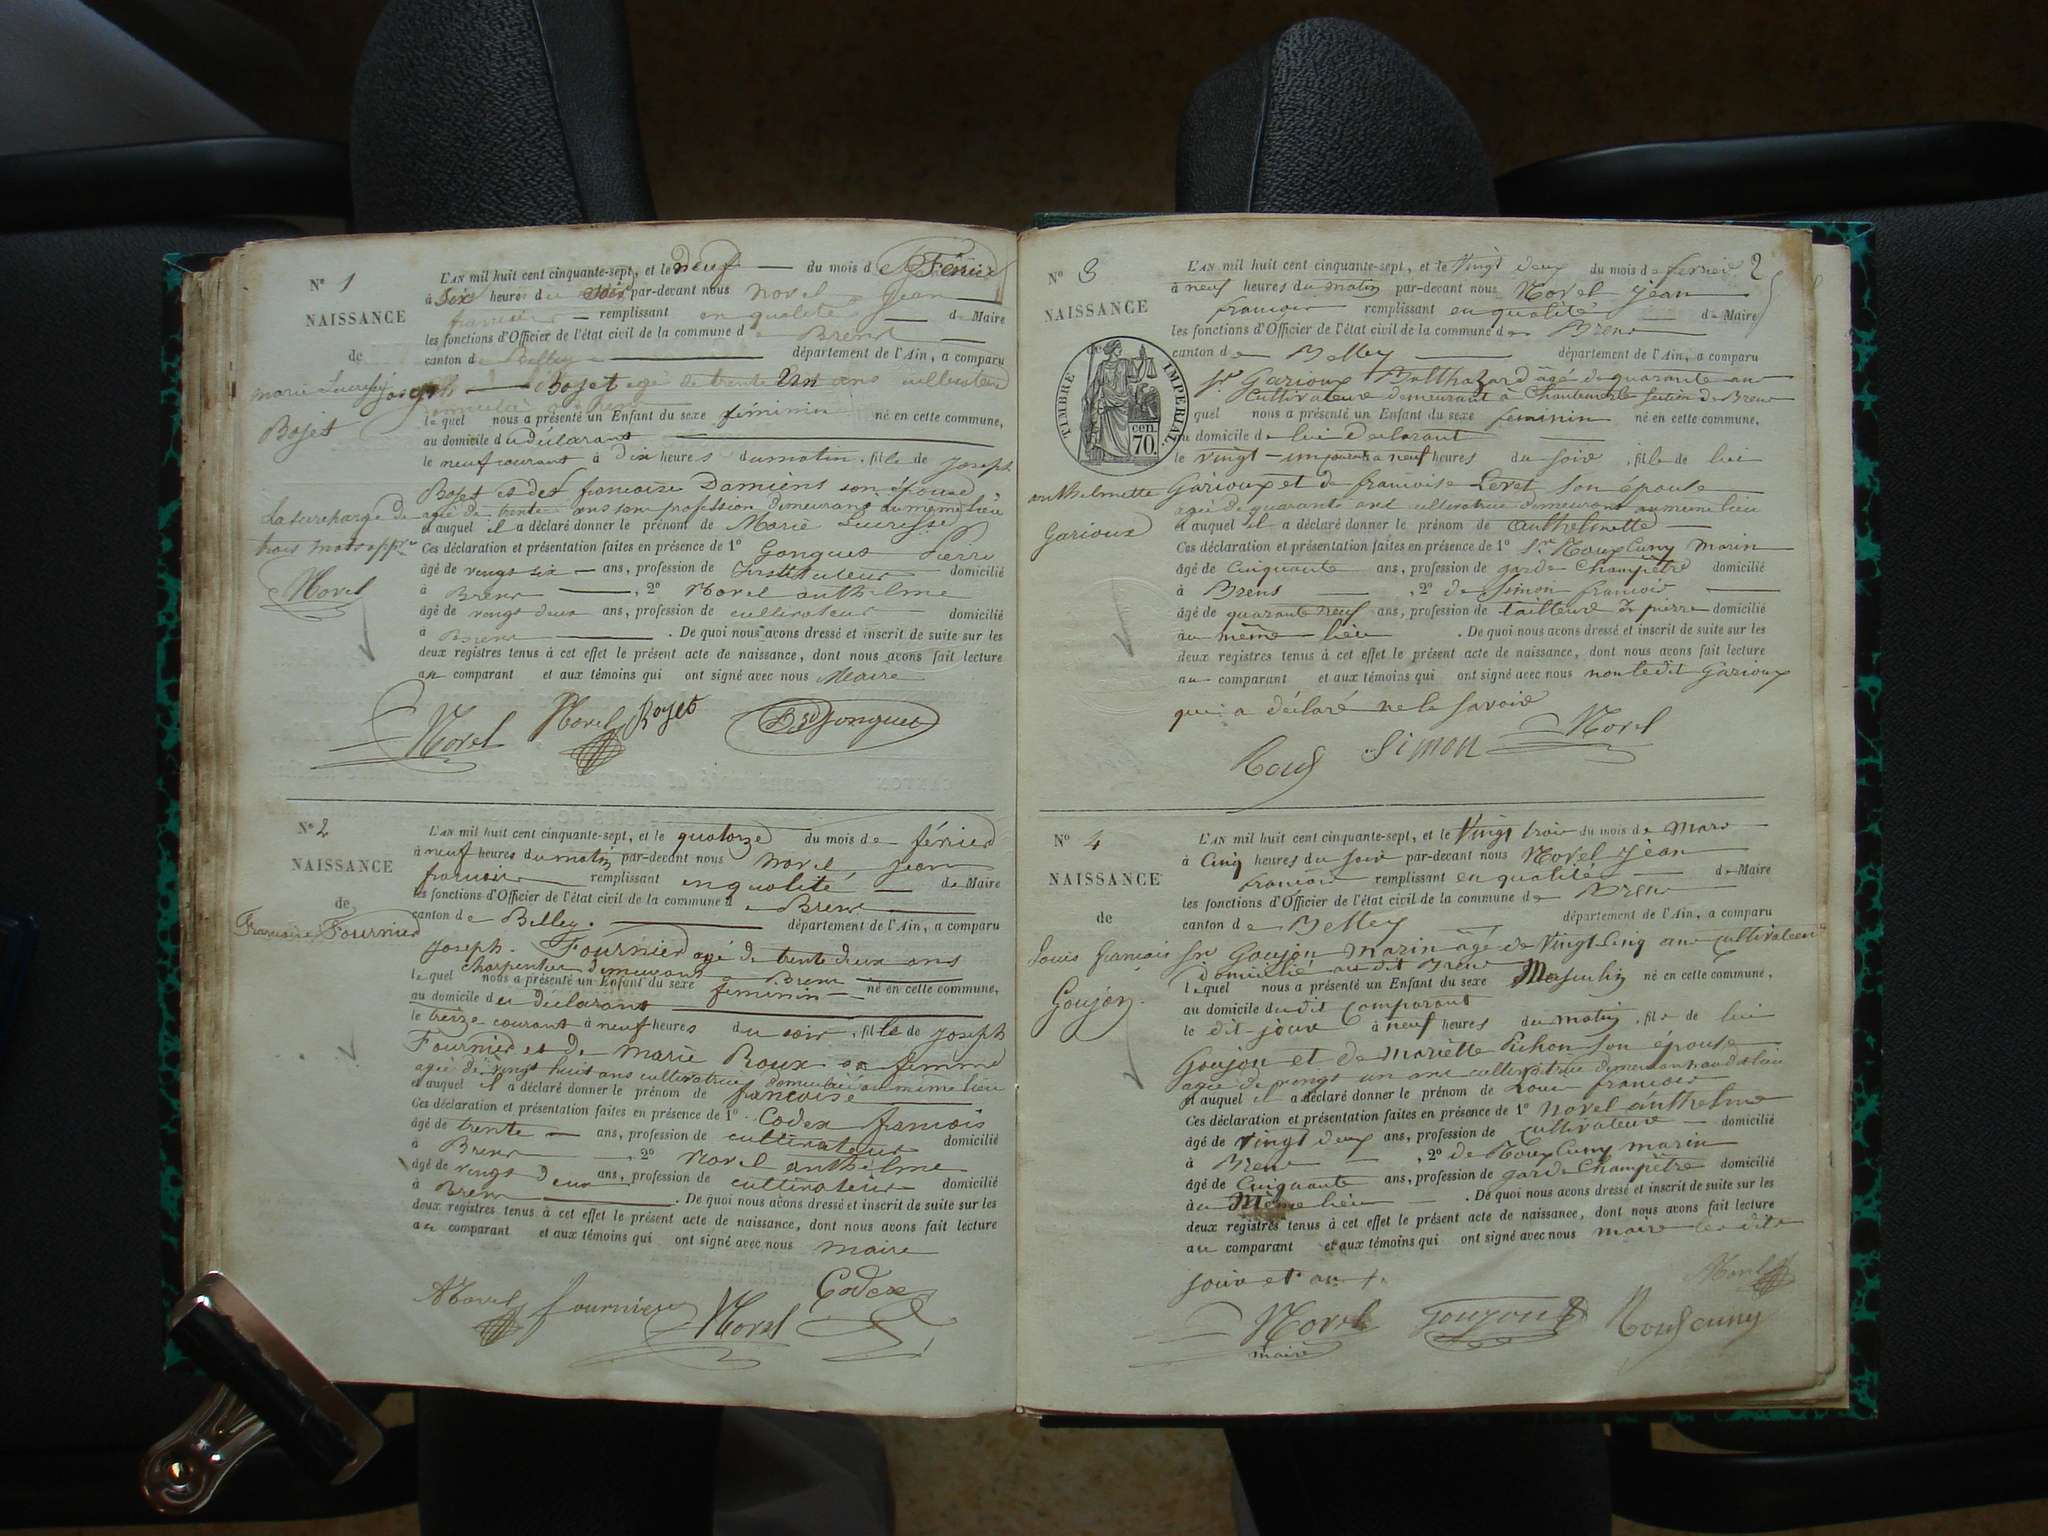 N° 1
NAISSANCE
de
marie Lucresse
Bojet
La surcharge de
trois mots app.
Morel
L'AN mil huit cent cinquante-sept, et le neuf du mois d Février
à six heures du soir par-devant nous Morel Jean
françois remplissant en qualité de Maire
les fonctions d'Officier de l'état civil de la commune de Brens
canton de Belley département de l'Ain, a comparu
joseph Bojet agé de trente un ans cultivateur
lequel nous a présenté un Enfant du sexe féminin né en cette commune,
au domicile du déclarant
le neuf courant à dix heures du matin, fille de joseph
Bojet et de françoise Damiens son épouse
agée de trente ans son profession demeurant au même lieu
et auquel il a déclaré donner le prénom de Marie Lucresse
Ces déclaration et présentation faites en présence de 1° Gongues Pierre
âgé de vingt six ans, profession de Instituteur domicilié
à Brens , 2° Morel anthelme
âgé de vingt deux ans, profession de cultivateur domicilié
à Brens . De quoi nous avons dressé et inscrit de suite sur les
deux registres tenus à cet effet le présent acte de naissance, dont nous avons fait lecture
au comparant et aux témoins qui ont signé avec nous Maire
Morel Morel Bojet Gongues
N° 2
NAISSANCE
de
Françoise Fournier
L'AN mil huit cent cinquante-sept, et le quatorze du mois de février
à neuf heures du matin par-devant nous Morel jean
françois remplissant en qualité de Maire
les fonctions d'Officier de l'état civil de la commune de Brens
canton de Belley. département de l'Ain, a comparu
joseph Fournier agé de trente deux ans
charpentier demeurant à Brens
lequel nous a présenté un Enfant du sexe feminin né en cette commune,
au domicile du déclarant
le treize courant à neuf heures du soir, fille de joseph
Fournier et de Marie Roux sa femme
agée de vingt huit ans cultivatrice domiciliée au même lieu
et auquel il a déclaré donner le prénom de françoise
Ces déclaration et présentation faites en présence de 1° Codex françois
âgé de trente ans, profession de cultivateur domicilié
à Brens , 2° Morel anthelme
âgé de vingt deux ans, profession de cultivateur domicilié
à Brens . De quoi nous avons dressé et inscrit de suite sur les
deux registres tenus à cet effet le présent acte de naissance, dont nous avons fait lecture
au comparant et aux témoins qui ont signé avec nous maire
Morel fournier Morel Codex
2
N° 3
NAISSANCE
de
TIMBRE IMPERIAL
cen.
70.
anthelmette
Garioux
L'AN mil huit cent cinquante-sept, et le Vingt deux du mois de fevrier
à neuf heures du matin par-devant nous Morel jean
françois remplissant en qualité de Maire
les fonctions d'Officier de l'état civil de la commune de Brens
canton de Belley département de l'Ain, a comparu
Sr Garioux Balthazard âgé de quarante ans
Cultivateur demeurant à Chantemerle section de Brens
lequel nous a présenté un Enfant du sexe feminin né en cette commune,
au domicile de lui Déclarant
le vingt-un courant à neuf heures du soir, fille de lui
Garioux et de françoise Levet son épouse
agée de quarante ans cultivatrice demeurant au même lieu
et auquel il a déclaré donner le prénom de anthelmette
Ces déclaration et présentation faites en présence de 1° Sr Roux Cuny Marin
âgé de cinquante ans, profession de garde Champêtre domicilié
à Brens , 2° de Simon françois
âgé de quarante neuf ans, profession de tailleur de pierre domicilié
au même lieu . De quoi nous avons dressé et inscrit de suite sur les
deux registres tenus à cet effet le présent acte de naissance, dont nous avons fait lecture
au comparant et aux témoins qui ont signé avec nous non ledit Garioux
qui a déclaré ne le savoir
Roux Simon Morel
N° 4
NAISSANCE
de
Louis françois
Goujon.
L'AN mil huit cent cinquante-sept, et le Vingt trois du mois de Mars
à Cinq heures du soir par-devant nous Morel jean
françois remplissant en qualité de Maire
les fonctions d'Officier de l'état civil de la commune de Brens
canton de Belley département de l'Ain, a comparu
Sr Goujon Marin âgé de Vingt Cinq ans cultivateur
domicilié au dit Brens
lequel nous a présenté un Enfant du sexe Masculin né en cette commune,
au domicile du dit comparant
le dit jour à neuf heures du matin, fils de lui
Goujon et de Mariette Pichon son épouse
agée de vingt un ans cultivatrice demeurant audit lieu
et auquel il a déclaré donner le prénom de Louis françois
Ces déclaration et présentation faites en présence de 1° Morel anthelme
âgé de vingt deux ans, profession de cultivateur domicilié
à Brens , 2° de Roux Cuny marin
âgé de Cinquante ans, profession de garde Champêtre domicilié
au Même lieu . De quoi nous avons dressé et inscrit de suite sur les
deux registres tenus à cet effet le présent acte de naissance, dont nous avons fait lecture
au comparant et aux témoins qui ont signé avec nous maire les dits
jour et an
Morel
Morel Goujon Roux cuny
maire